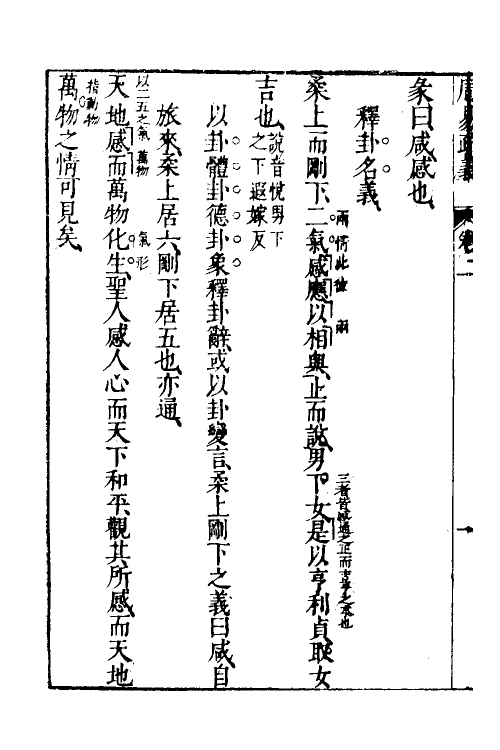 彖曰咸感也
釋卦名義
柔上而剛下二氣感應以相與止而說男下女是以亨利貞取女
吉也
說音悅男下
之下遐嫁反
以卦體卦德卦象釋卦辭或以卦變言柔上剛下之義曰咸自
旅來柔上居六剛下居五也亦通
以二五之氣
萬物
氣形
天地感而萬物化生聖人感人心而天下和平觀其所感而天地
指動物
萬物之情可見矣